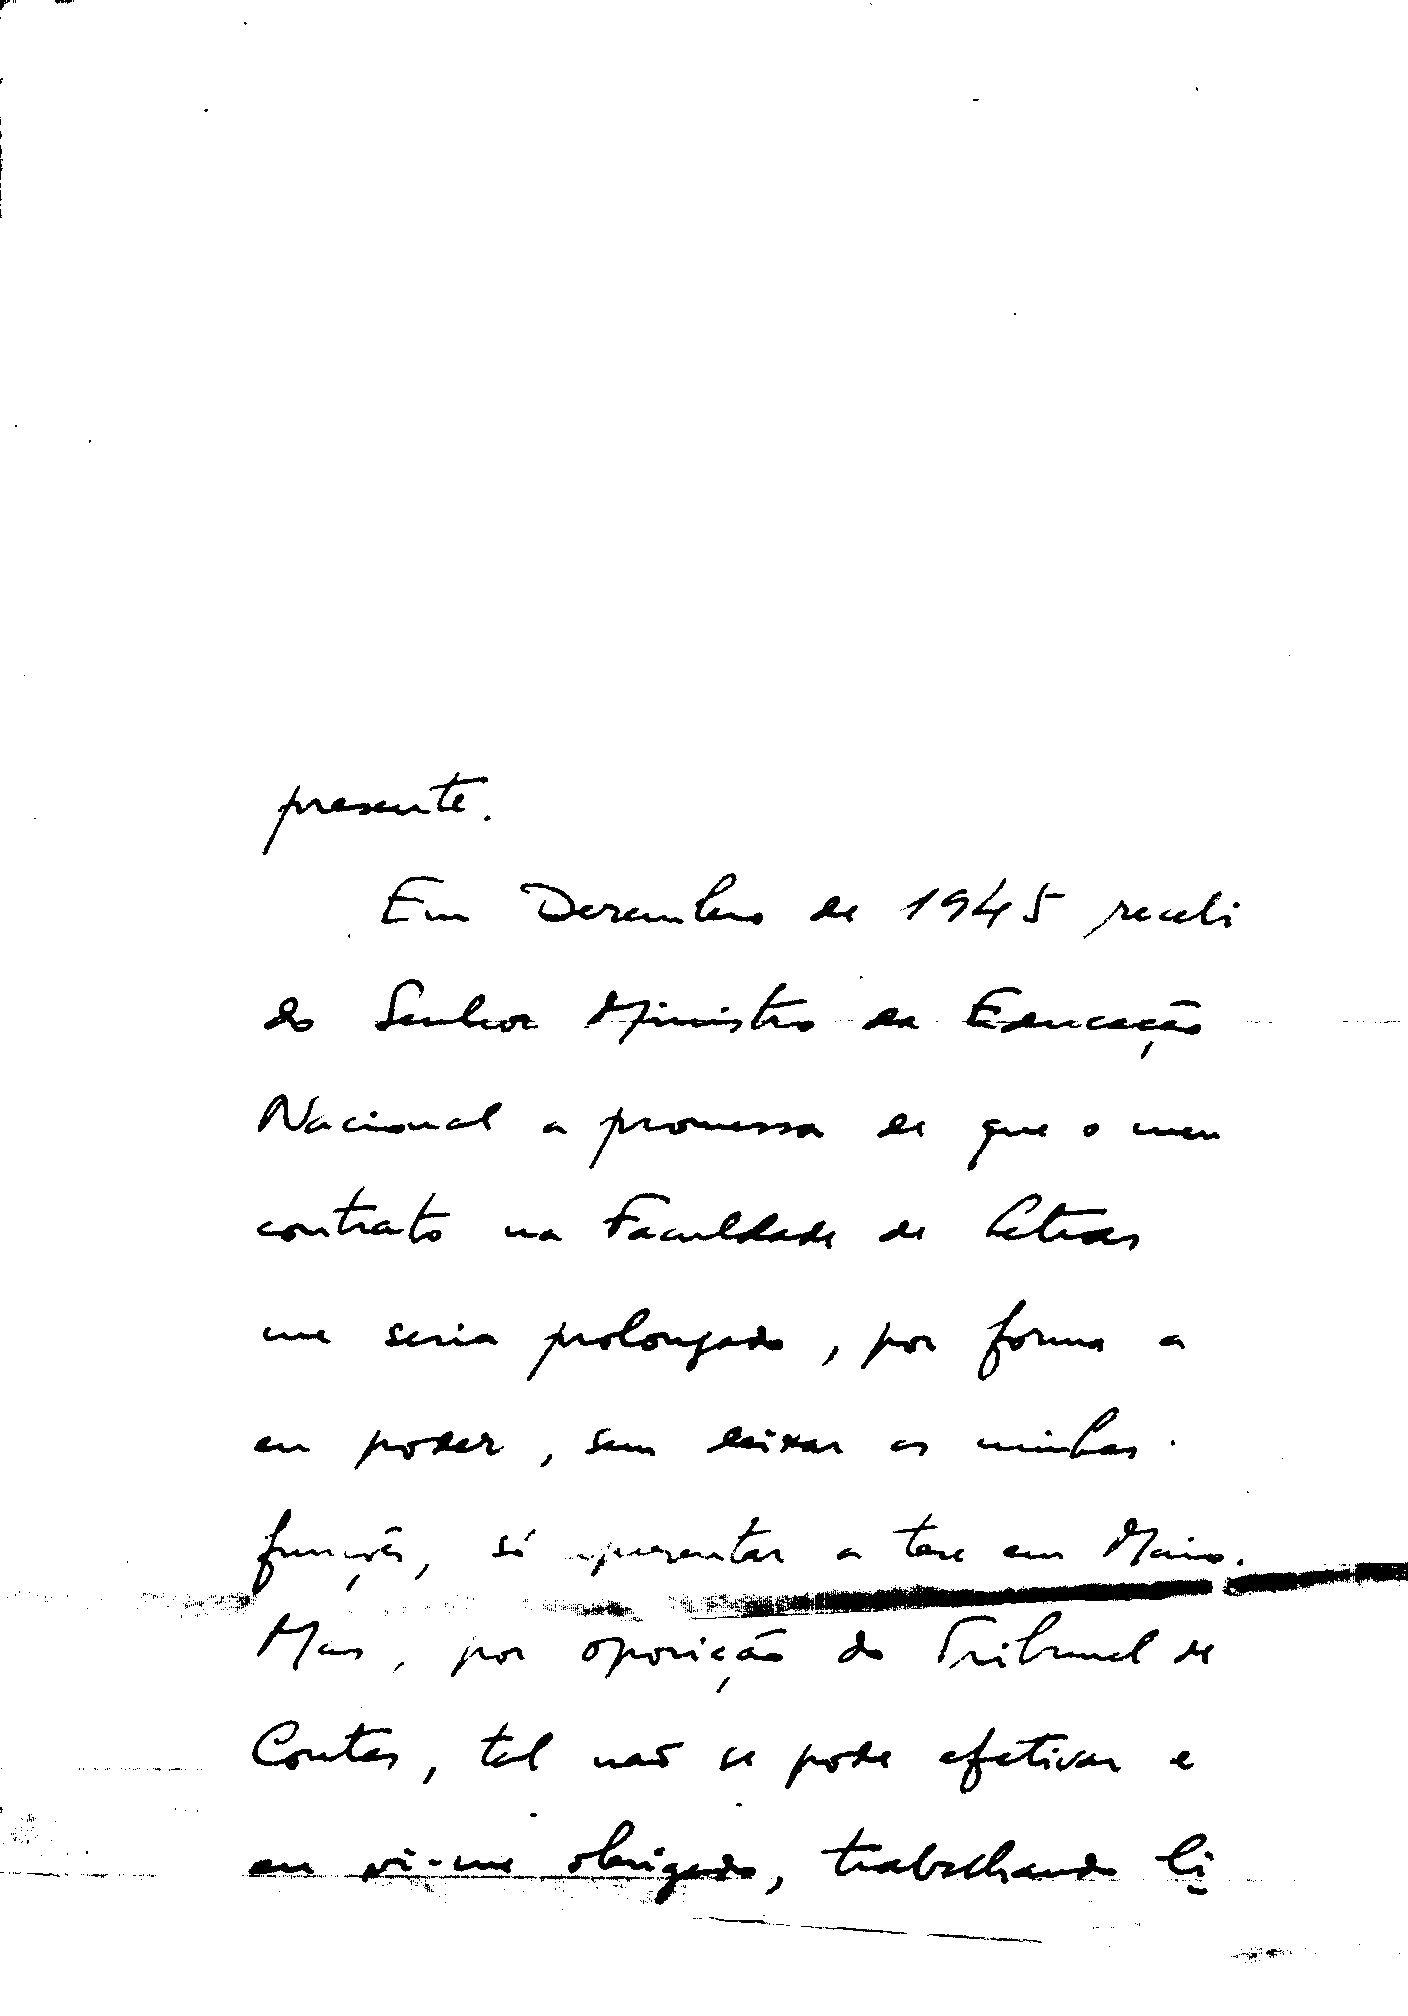 presente.
Em Dezembro de 1945 recebi
do Senhor Ministro da Educação
Nacional a promessa de que o meu
contrato na Faculdade de Letras
me seria prolongado, por forma a
eu poder, sem deixar as minhas
funções, só apresentar a tese em Maio.
Mas, por oposição do Tribunal de
Contas, tal não se pode efetivar e
eu vi-me obrigado, trabalhando li